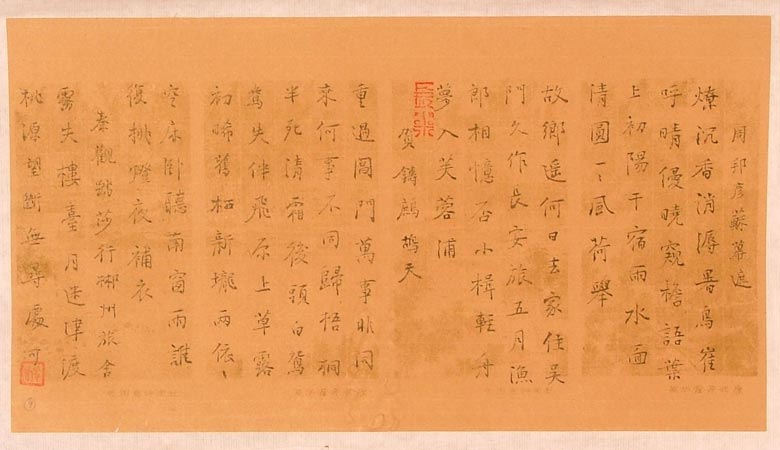 周邦彦蘇幕遮
燎沉香消溽暑鳥雀
呼晴侵曉窺檐語葉
上初陽干宿雨水面
清圓一一風荷舉
故鄉遥何日去家住吴
門久作長安旅五月漁
郎相憶否小楫輕舟
夢入芙蓉浦
長樂
賀鑄鷓鴣天
重過閶門萬事非同
來何事不同歸梧桐
半死清霜後頭白鴛
鴦失伴飛原上草露
初晞舊栖新壠兩依〻
空床卧聽南窗雨誰
復挑燈夜補衣
秦觀踏莎行郴州旅舍
霧失樓臺月迷津渡
桃源望断無尋處可